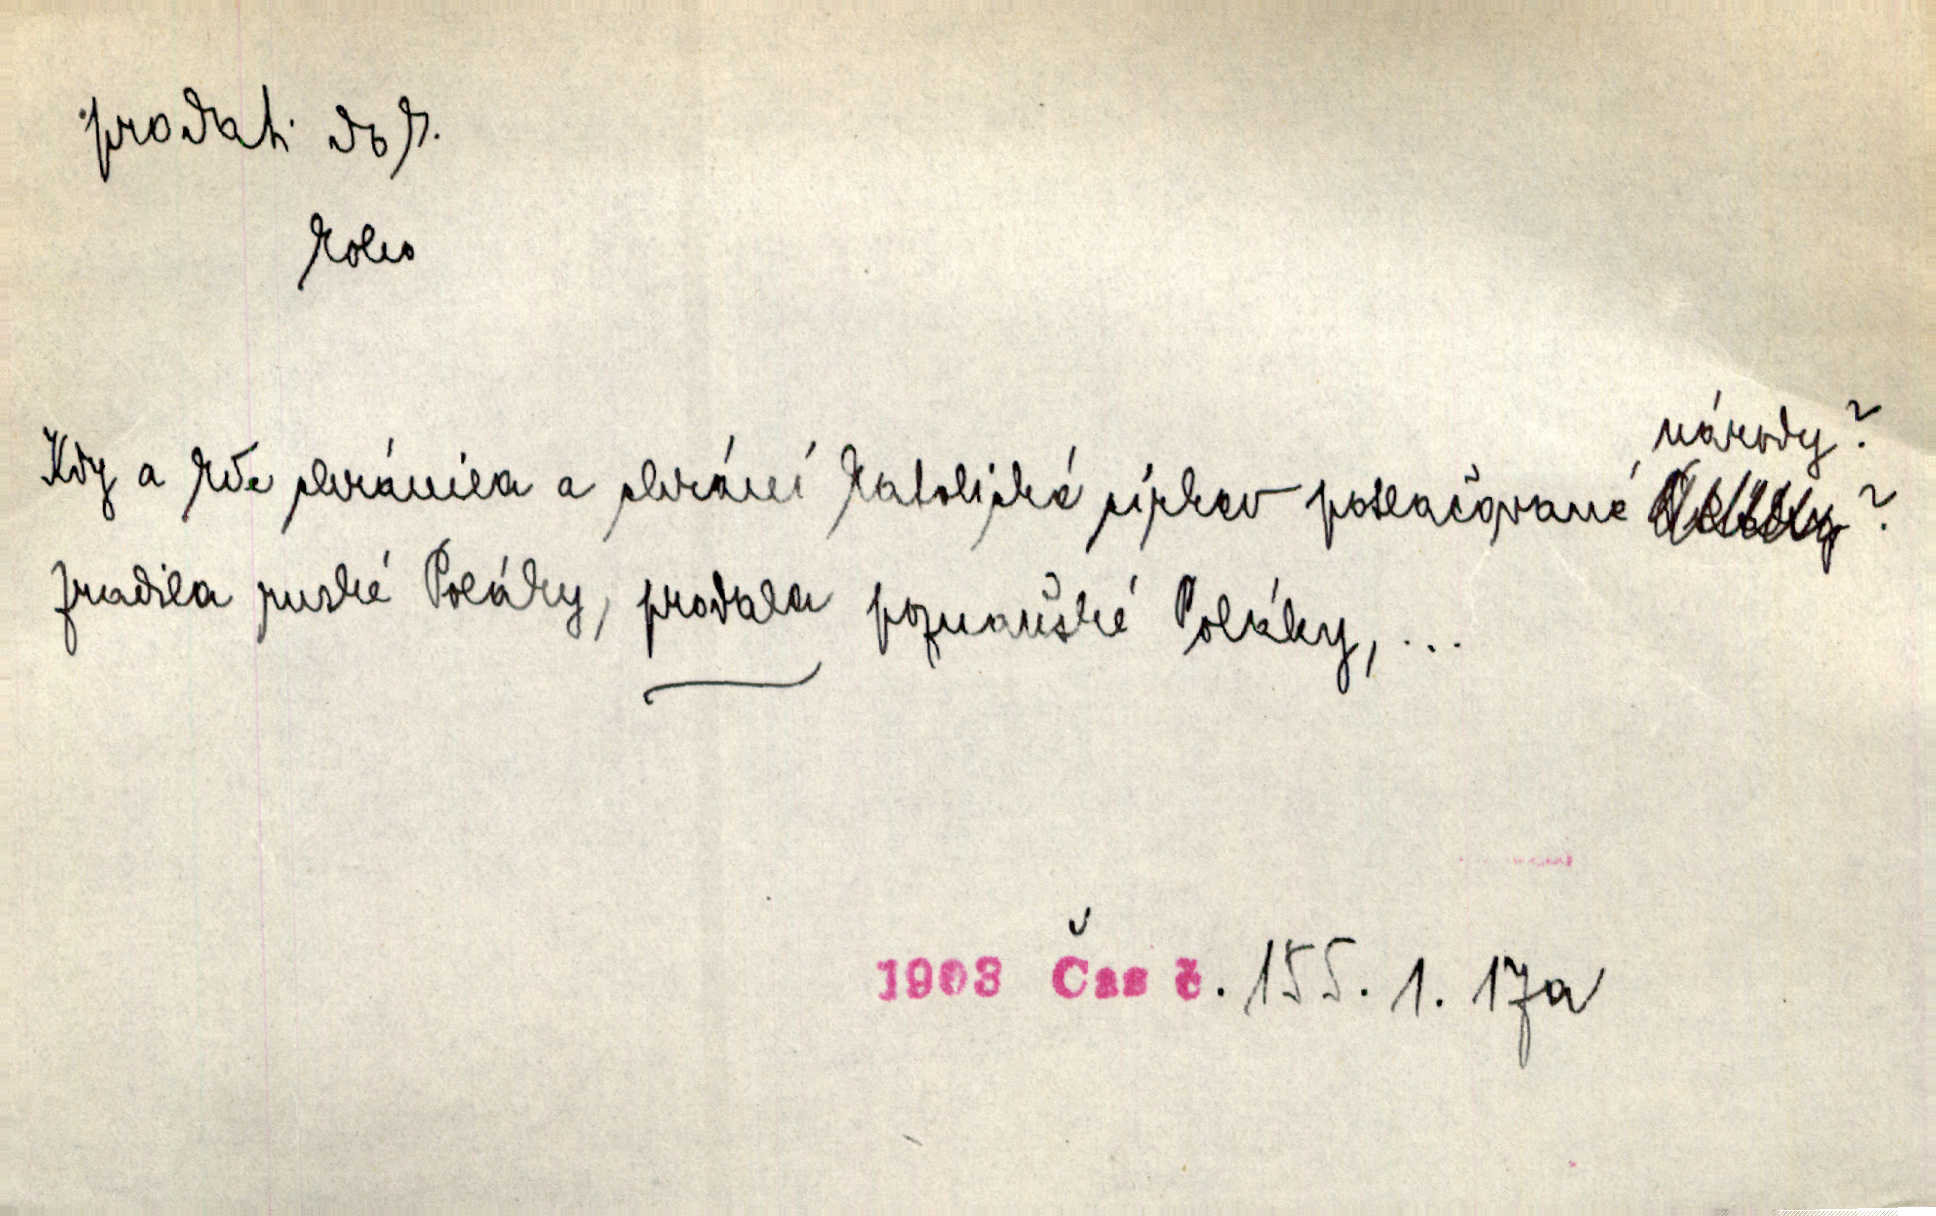 prodati dok.
koho
národy?
Kdy a kde chránila a chrání katolická církev potlačované ?
zradila ruské Poláky, prodala poznaňské Poláky, ...
1903 Čas č. 155. 1. 17a